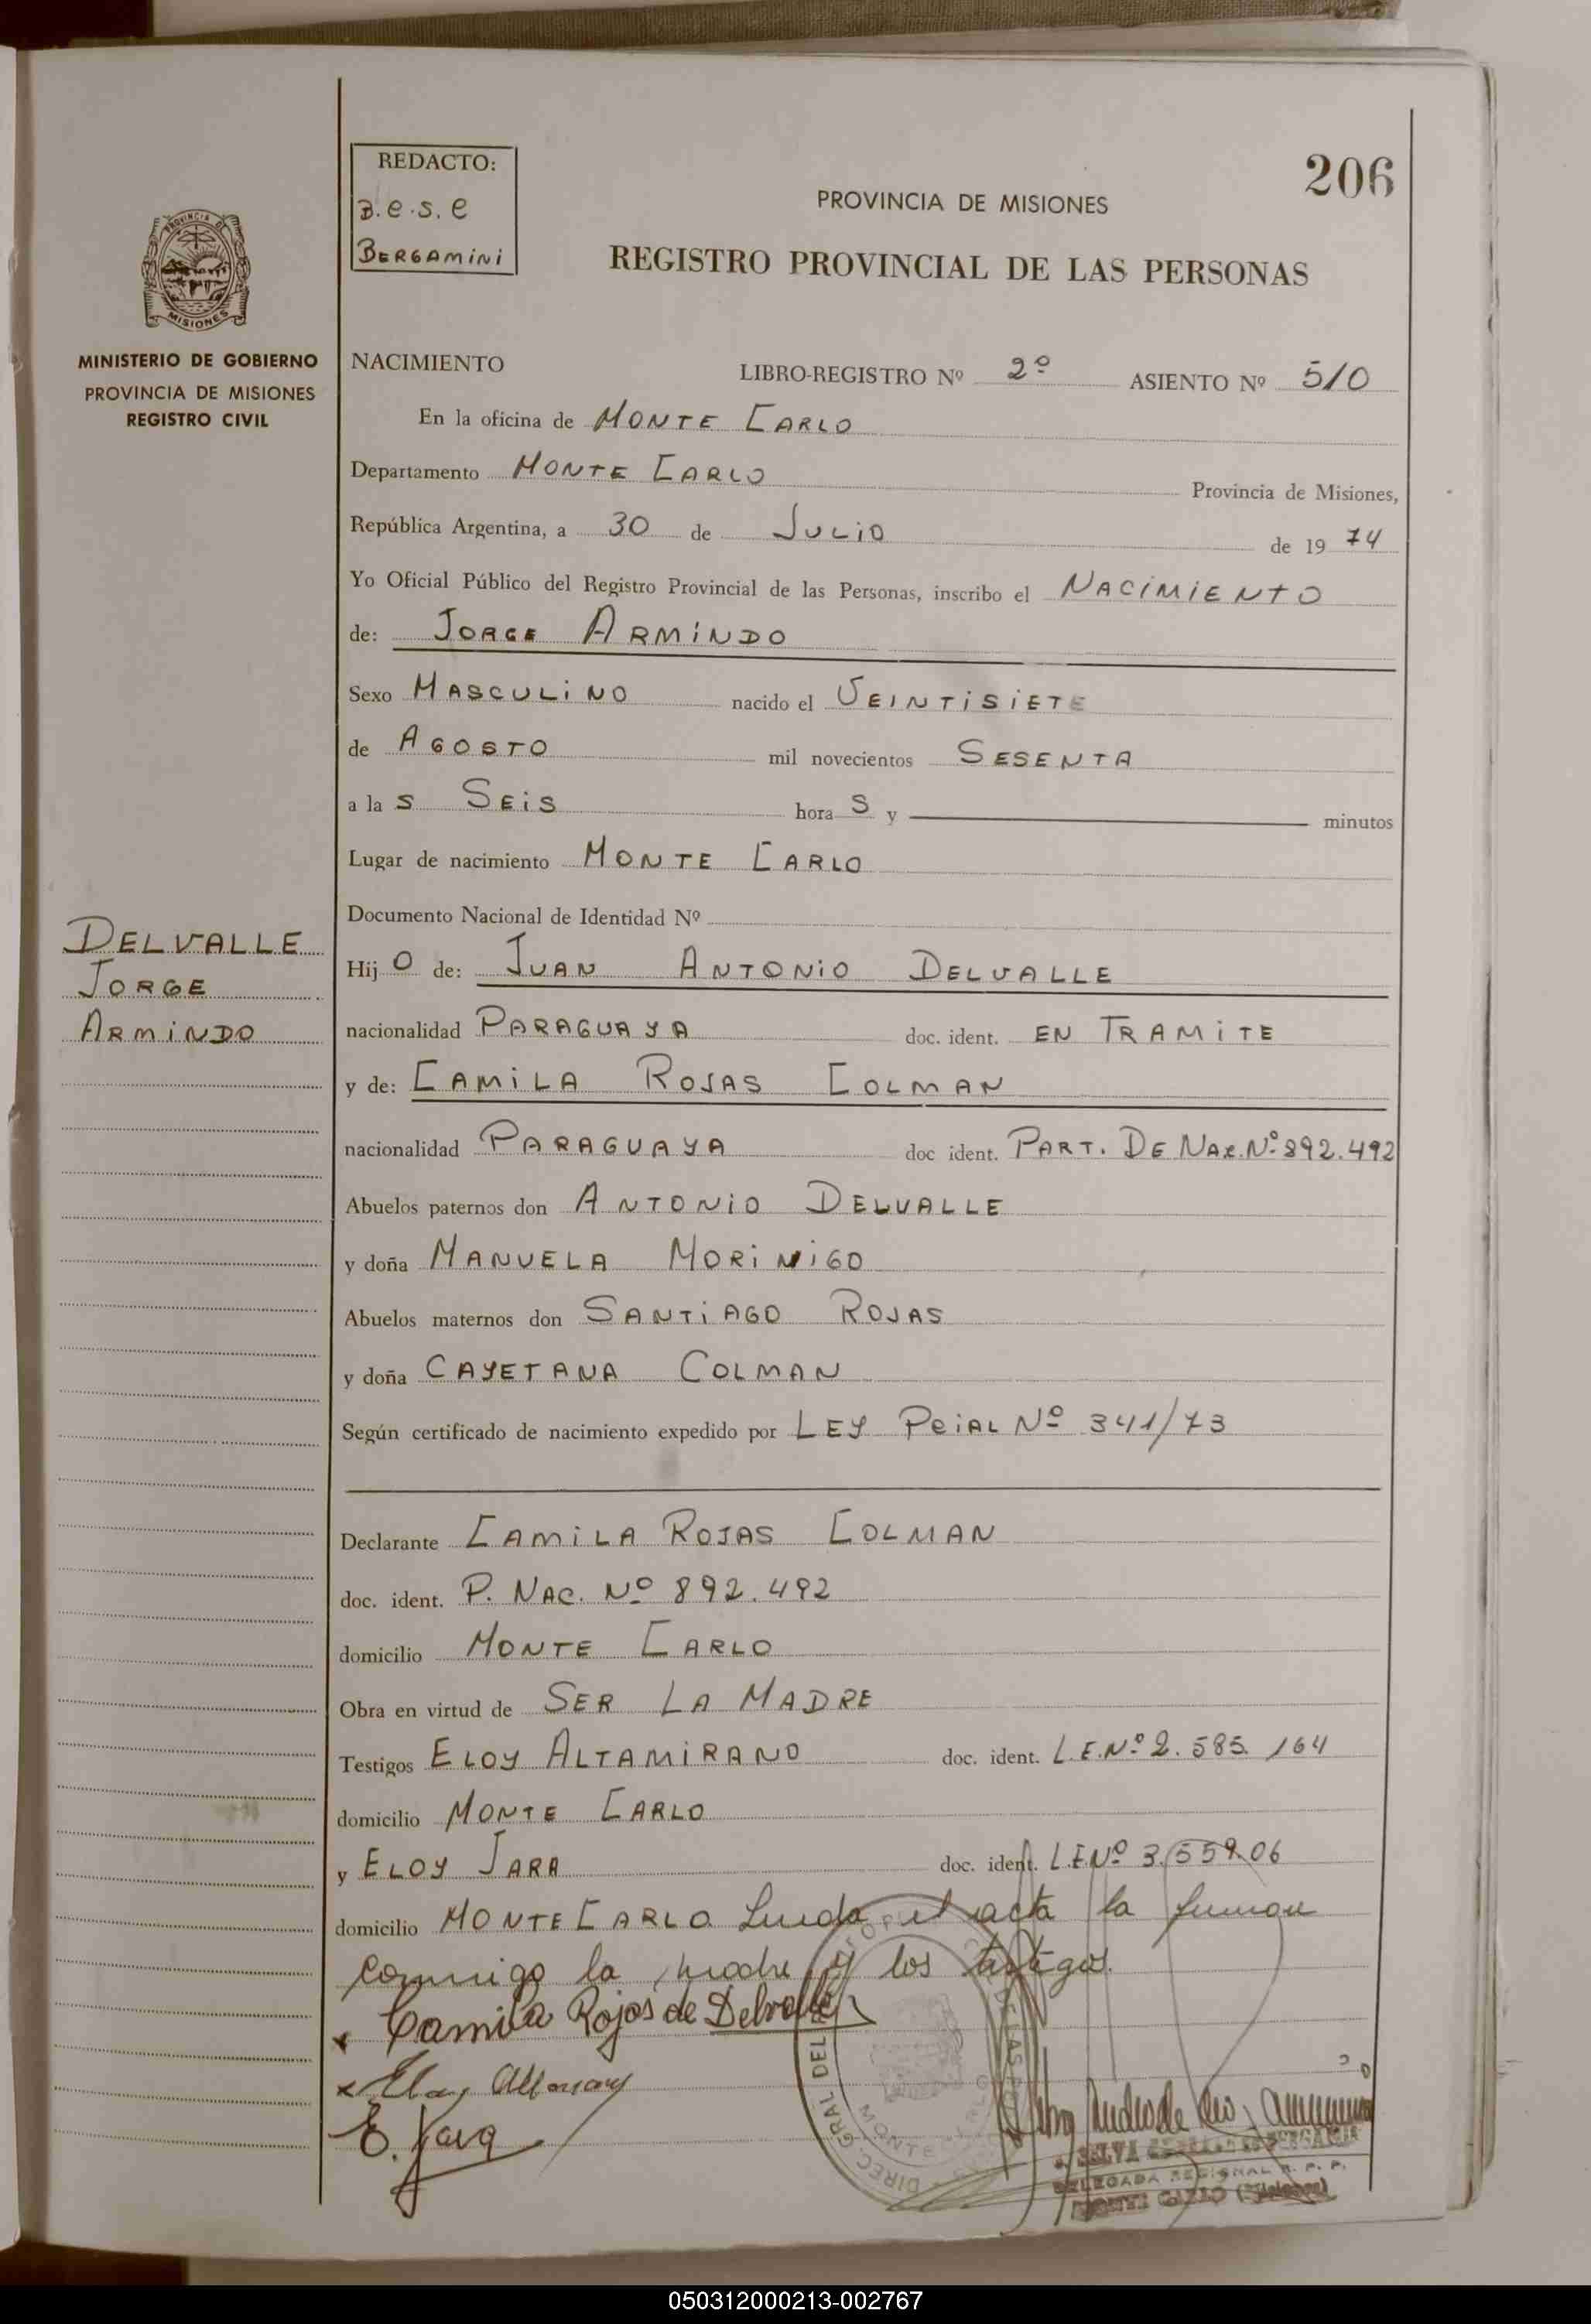 206
REDACTO:
B.e.s.e
BERGAMINI
PROVINCIA DE MISIONES
REGISTRO PROVINCIAL DE LAS PERSONAS
PROVINCIA DE
MISIONES
MINISTERIO DE GOBIERNO
PROVINCIA DE MISIONES
REGISTRO CIVIL
DELVALLE
JORGE
ARMINDO
NACIMIENTO LIBRO-REGISTRO Nº 2º ASIENTO Nº 510
En la oficina de MONTE CARLO
Departamento MONTE CARLO Provincia de Misiones,
República Argentina, a 30 de JULIO de 19 74
Yo Oficial Público del Registro Provincial de las Personas, inscribo el NACIMIENTO
de: JORGE ARMINDO
Sexo MASCULINO nacido el VEINTISIETE
de AGOSTO mil novecientos SESENTA
a la s SEIS hora s y minutos
Lugar de nacimiento MONTE CARLO
Documento Nacional de Identidad Nº
Hij O de: JUAN ANTONIO DELVALLE
nacionalidad PARAGUAYA doc. ident. EN TRAMITE
y de: CAMILA ROJAS COLMAN
nacionalidad PARAGUAYA doc ident. PART. DE NAC. Nº 892.492
Abuelos paternos don ANTONIO DELVALLE
y doña MANUELA MORINIGO
Abuelos maternos don SANTIAGO ROJAS
y doña CAYETANA COLMAN
Según certificado de nacimiento expedido por LEY PCIAL Nº 341/73
Declarante CAMILA ROJAS COLMAN
doc. ident. P. NAC. Nº 892.492
domicilio MONTE CARLO
Obra en virtud de SER LA MADRE
Testigos ELOY ALTAMIRANO doc. ident. L.E.Nº 2.585.164
domicilio MONTE CARLO
y ELOY JARA doc. ident. L.E.Nº 3.559.06
domicilio MONTE CARLO Leida el acta la firman
conmigo la madre y los testigos.
x Camila Rojas de Delvalle
x Eloy
E. Jara
DIREC. GRAL DEL
MONTE
DELEGADA REGIONAL R. P. P.
MONTE CARLO (Misiones)
050312000213-002767